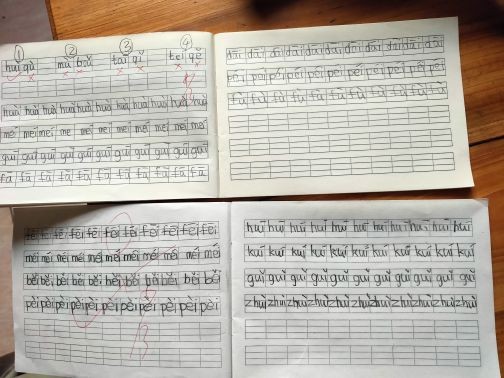 ① ② ③ ④
huà huà huà huà huà huà huà huà huà huà
méi méi méi me méi méi méi méi méi méi
guī guī guī guī guī guī guī guī guī guī
fā fā fā fā fā fā fā fā fā fā
dāi dāi dāi dāi dāi dāi dāi dāi dāi dāi
péi péi péi péi péi péi péi péi péi péi
fù fù fù fù fù fù fù fù fù fù
fēi fēi fēi fēi fēi fēi fēi fēi fēi fēi
méi méi méi méi méi méi méi méi méi méi
běi běi běi běi běi běi běi běi běi běi
pèi pèi pèi pèi pèi pèi pèi pèi pèi pèi
huī huī huī huī huī huī huī huī huī huī
kuī kuī kuī kuī kuī kuī kuī kuī kuī kuī
guǐ guǐ guǐ guǐ guǐ guǐ guǐ guǐ guǐ guǐ
zhuì zhuì zhuì zhuì zhuì zhuì zhuì zhuì zhuì zhuì